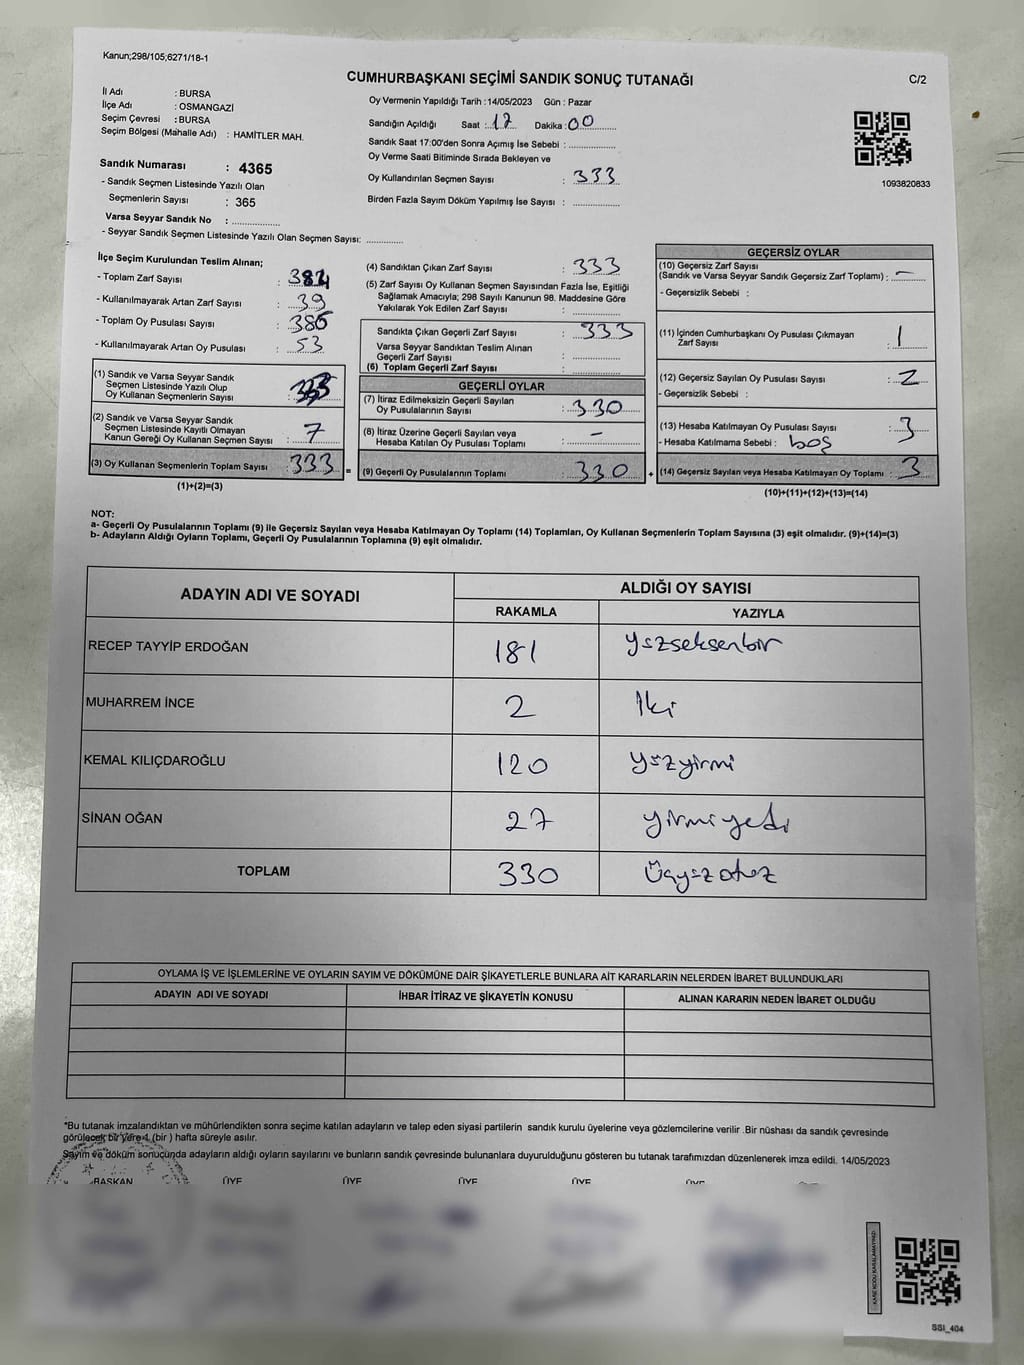 Kanun;298/105;6271/18-1
CUMHURBAŞKANI SEÇİMİ SANDIK SONUÇ TUTANAĞI
C/2
İl Adı : BURSA
İlçe Adı : OSMANGAZİ
Seçim Çevresi : BURSA
Seçim Bölgesi (Mahalle Adı) : HAMİTLER MAH.
Sandık Numarası : 4365
- Sandık Seçmen Listesinde Yazılı Olan
Seçmenlerin Sayısı : 365
Varsa Seyyar Sandık No : ................
- Seyyar Sandık Seçmen Listesinde Yazılı Olan Seçmen Sayısı: ............
Oy Vermenin Yapıldığı Tarih :14/05/2023 Gün : Pazar
Sandığın Açıldığı Saat : 17 Dakika : 00
Sandık Saat 17:00'den Sonra Açımış İse Sebebi : ................
Oy Verme Saati Bitiminde Sırada Bekleyen ve
Oy Kullandırılan Seçmen Sayısı : 333
Birden Fazla Sayım Döküm Yapılmış İse Sayısı : ................
1093820833
İlçe Seçim Kurulundan Teslim Alınan;
- Toplam Zarf Sayısı :
- Kullanılmayarak Artan Zarf Sayısı : 39
- Toplam Oy Pusulası Sayısı : 386
- Kullanılmayarak Artan Oy Pusulası : 53
(1) Sandık ve Varsa Seyyar Sandık
Seçmen Listesinde Yazılı Olup
Oy Kullanan Seçmenlerin Sayısı :
(2) Sandık ve Varsa Seyyar Sandık
Seçmen Listesinde Kayıtlı Olmayan
Kanun Gereği Oy Kullanan Seçmen Sayısı : 7
(3) Oy Kullanan Seçmenlerin Toplam Sayısı : 333 =
(1)+(2)=(3)
(4) Sandıktan Çıkan Zarf Sayısı : 333
(5) Zarf Sayısı Oy Kullanan Seçmen Sayısından Fazla İse, Eşitliği
Sağlamak Amacıyla; 298 Sayılı Kanunun 98. Maddesine Göre
Yakılarak Yok Edilen Zarf Sayısı : ................
Sandıkta Çıkan Geçerli Zarf Sayısı : 333
Varsa Seyyar Sandıktan Teslim Alınan
Geçerli Zarf Sayısı : ................
(6) Toplam Geçerli Zarf Sayısı : ................
GEÇERLİ OYLAR
(7) İtiraz Edilmeksizin Geçerli Sayılan
Oy Pusulalarının Sayısı : 330
(8) İtiraz Üzerine Geçerli Sayılan veya
Hesaba Katılan Oy Pusulası Toplamı : –
(9) Geçerli Oy Pusulalarının Toplamı : 330 +
GEÇERSİZ OYLAR
(10) Geçersiz Zarf Sayısı
(Sandık ve Varsa Seyyar Sandık Geçersiz Zarf Toplamı) : –
- Geçersizlik Sebebi :
(11) İçinden Cumhurbaşkanı Oy Pusulası Çıkmayan
Zarf Sayısı : 1
(12) Geçersiz Sayılan Oy Pusulası Sayısı : 2
- Geçersizlik Sebebi :
(13) Hesaba Katılmayan Oy Pusulası Sayısı : 3
- Hesaba Katılmama Sebebi : boş
(14) Geçersiz Sayılan veya Hesaba Katılmayan Oy Toplamı : 3
(10)+(11)+(12)+(13)=(14)
NOT:
a- Geçerli Oy Pusulalarının Toplamı (9) ile Geçersiz Sayılan veya Hesaba Katılmayan Oy Toplamı (14) Toplamları, Oy Kullanan Seçmenlerin Toplam Sayısına (3) eşit olmalıdır. (9)+(14)=(3)
b- Adayların Aldığı Oyların Toplamı, Geçerli Oy Pusulalarının Toplamına (9) eşit olmalıdır.
ADAYIN ADI VE SOYADI ALDIĞI OY SAYISI
RAKAMLA YAZIYLA
RECEP TAYYİP ERDOĞAN 181 yüzseksenbir
MUHARREM İNCE 2 İki
KEMAL KILIÇDAROĞLU 120 yüzyirmi
SİNAN OĞAN 27 yirmiyedi
TOPLAM 330 Üçyüzotuz
OYLAMA İŞ VE İŞLEMLERİNE VE OYLARIN SAYIM VE DÖKÜMÜNE DAİR ŞİKAYETLERLE BUNLARA AİT KARARLARIN NELERDEN İBARET BULUNDUKLARI
ADAYIN ADI VE SOYADI İHBAR İTİRAZ VE ŞİKAYETİN KONUSU ALINAN KARARIN NEDEN İBARET OLDUĞU
*Bu tutanak imzalandıktan ve mühürlendikten sonra seçime katılan adayların ve talep eden siyasi partilerin sandık kurulu üyelerine veya gözlemcilerine verilir .Bir nüshası da sandık çevresinde
görülecek bir yere 1 (bir ) hafta süreyle asılır.
Sayım ve döküm sonucunda adayların aldığı oyların sayılarını ve bunların sandık çevresinde bulunanlara duyurulduğunu gösteren bu tutanak tarafımızdan düzenlenerek imza edildi. 14/05/2023
BAŞKAN ÜYE ÜYE ÜYE ÜYE ÜYE
KARE KODU KARALAMAYINIZ
SSI_404